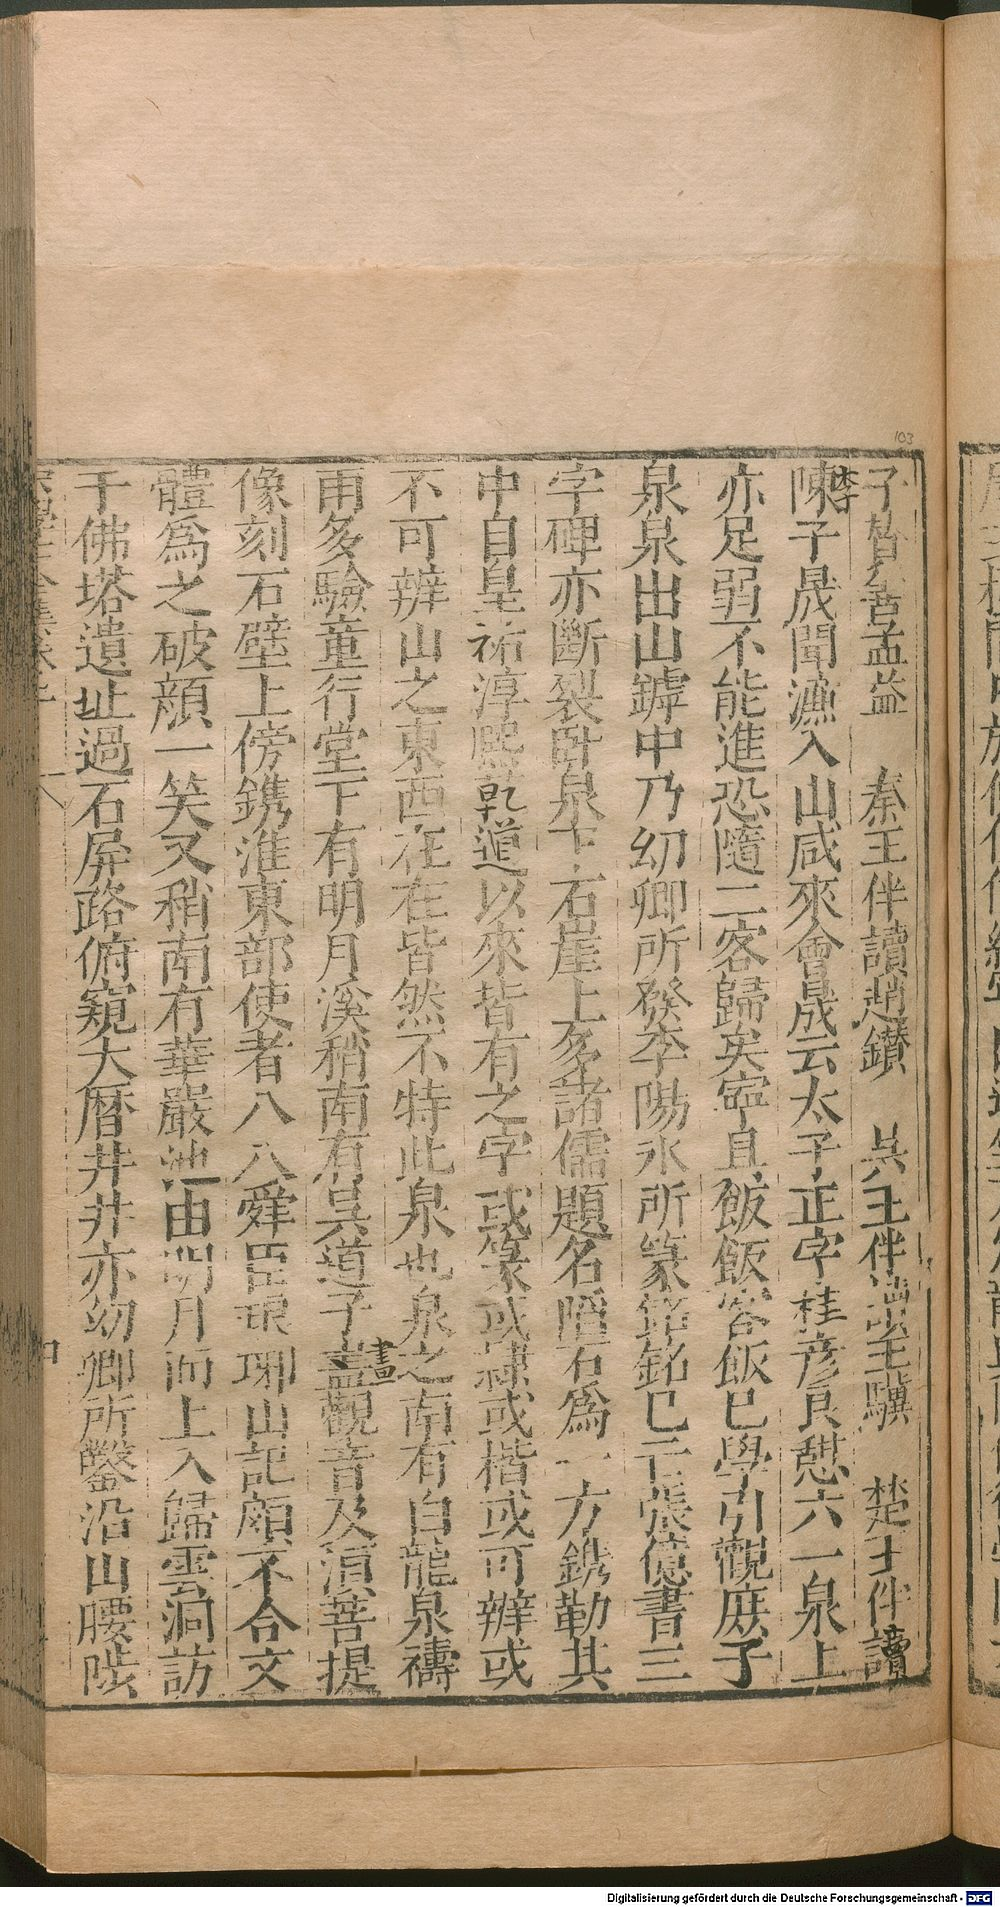 子晳金善孟益　秦王伴讀趙鑚　吳王伴讀王驥　楚王伴讀
陳子晟聞濂入山咸來會晟云太子正字桂彥良憇六一泉上
亦足弱不能進恐隨二客歸矣寧且飯飯客飯已學引觀庶子
泉泉出山鏬中乃幼卿所發李陽氷所篆銘銘已亡張億書三
字碑亦斷裂臥泉下石崖上多諸儒題名陷石為一方鐫勒其
中自皇祐淳熈乾道以來皆有之字或篆或隸或楷或可辨或
不可辨山之東西在在皆然不特此泉也泉之南有白龍泉禱
雨多驗童行堂下有明月溪稍南有吳道子畫觀音及湏菩提
像刻石壁上傍鐫淮東部使者八八舜臣琅琊山記頗不合文
體為之破顏一笑又稍南有華嚴池由明月而上入歸雲洞訪
千佛塔遺址過石屏路俯窺大曆井井亦幼卿所鑿沿山腰陟
李
畫
103
Digitalisierung gefördert durch die Deutsche Forschungsgemeinschaft - DFG